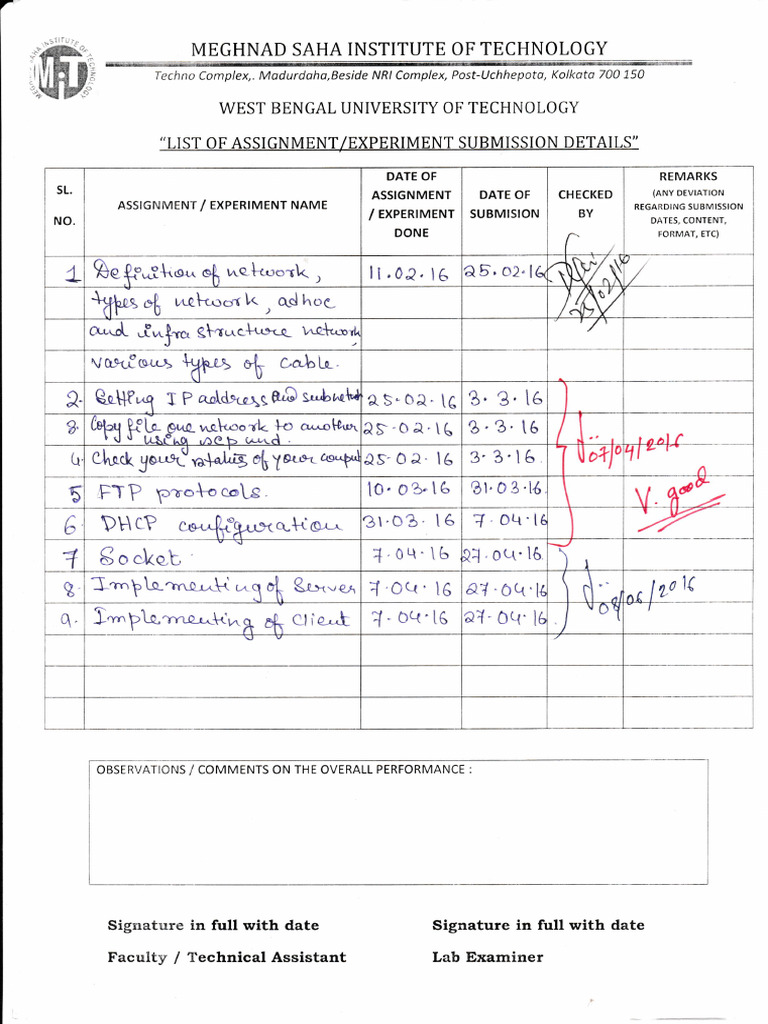 MEGHNAD SAHA INSTITUTE OF TECHNOLOGY
MiT
MEGHNAD SAHA INSTITUTE OF TECHNOLOGY
Techno Complex,. Madurdaha,Beside NRI Complex, Post-Uchhepota, Kolkata 700 150
WEST BENGAL UNIVERSITY OF TECHNOLOGY
“LIST OF ASSIGNMENT/EXPERIMENT SUBMISSION DETAILS”
SL. NO. ASSIGNMENT / EXPERIMENT NAME DATE OF ASSIGNMENT / EXPERIMENT DONE DATE OF SUBMISION CHECKED BY REMARKS (ANY DEVIATION REGARDING SUBMISSION DATES, CONTENT, FORMAT, ETC)
1 Definition of network, 11.02.16 25.02.16 25/02/16
types of network, adhoc
and infrastructure network,
various types of cable.
2. Setting IP address and subnet 25.02.16 3.3.16
3. Copy file one network to another 25.02.16 3.3.16
using scp
4. Check your status of your 25.02.16 3.3.16 07/04/2016
5 FTP protocols. 10.03.16 31.03.16 V. good
6. DHCP configuration 31.03.16 7.04.16
7 Socket. 7.04.16 27.04.16
8. Implementing of Server 7.04.16 27.04.16 08/06/2016
9. Implementing of Client 7.04.16 27.04.16
OBSERVATIONS / COMMENTS ON THE OVERALL PERFORMANCE :
Signature in full with date Signature in full with date
Faculty / Technical Assistant Lab Examiner